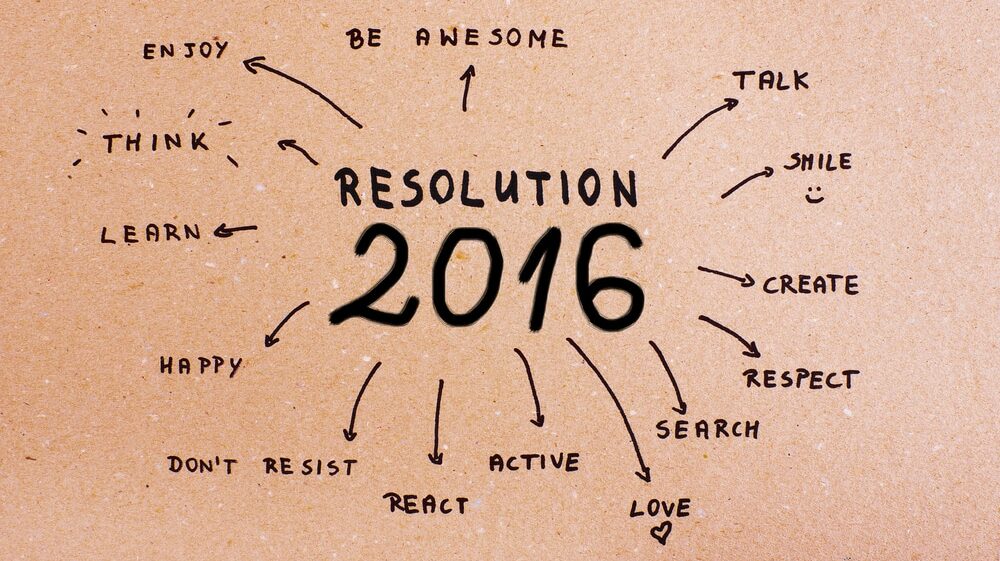 BE AWESOME
ENJOY
TALK
THINK
SMILE
RESOLUTION
2016
LEARN
CREATE
HAPPY
RESPECT
SEARCH
DON'T RESIST
ACTIVE
REACT
LOVE